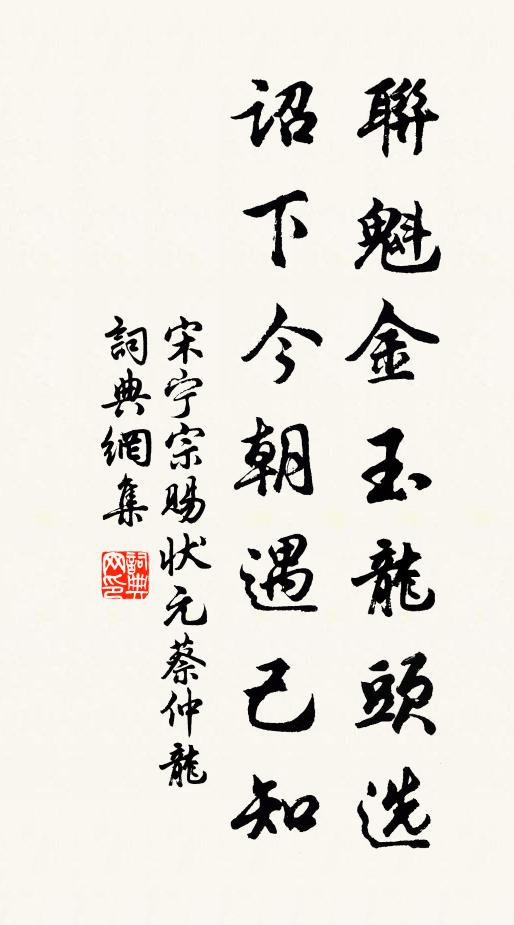 聯魁金玉龍頭选
詔下今朝遇己知
宋宁宗赐状元蔡仲龍
詞典網集
詞典网印